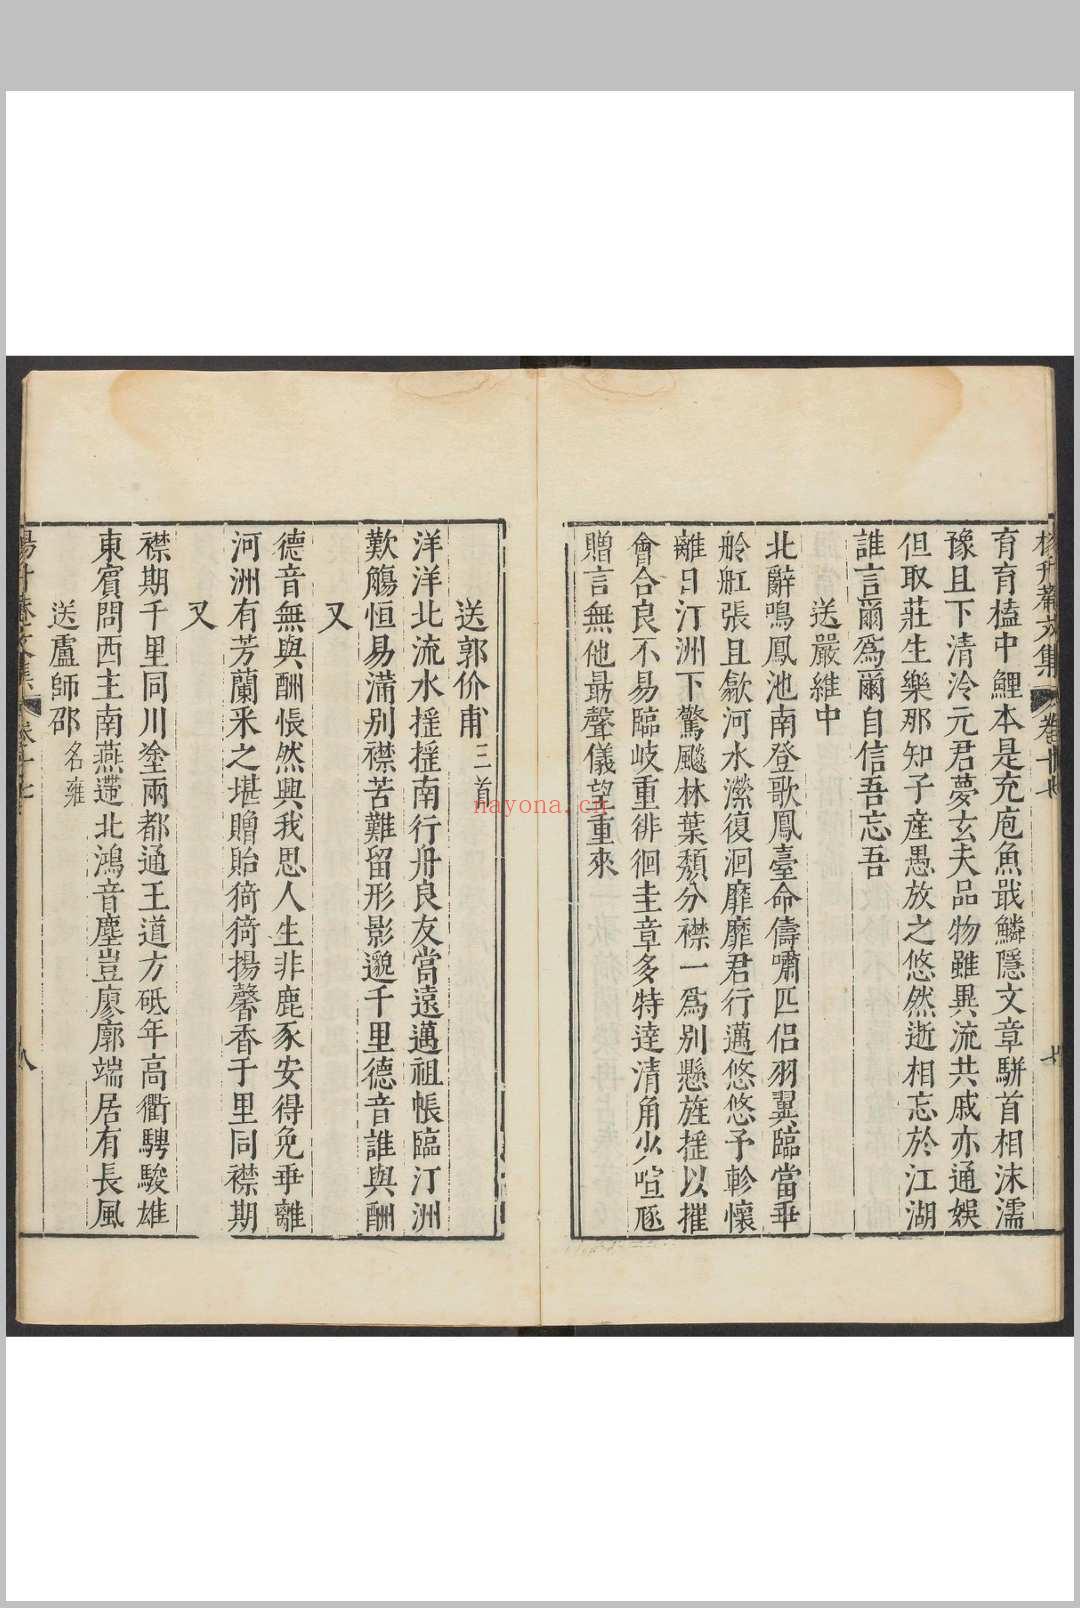 育育榼中鯉本是充庖魚戢鱗隱文章駢首相沬濡
豫且下清泠元君夢玄夫品物雖異流共戚亦通娛
但取莊生樂那知子產愚放之悠然逝相忘於江湖
誰言爾爲爾自信吾忘吾
送嚴維中
北辭鳴鳳池南登歌鳳臺命儔嘯匹侶羽翼臨當乖
舲舡張且歙河水瀠復洄靡靡君行邁悠悠予軫懷
離日汀洲下驚飈林葉頽分襟一爲別懸旌摇以摧
會合良不易臨岐重徘徊圭章多特達清角少喧豗
贈言無他最聲儀望重來
送郭价甫三首
洋洋北流水摇摇南行舟良友當遠邁祖帳臨汀洲
歎觴恒易滿別襟苦難留形影邈千里德音誰與酬
又
德音無與酬悵然興我思人生非鹿豕安得免乖離
河洲有芳蘭采之堪贈貽猗猗揚馨香千里同襟期
又
襟期千里同川塗兩都通王道方砥年高衢騁駿雄
東賓問西主南燕遰北鴻音塵豈廖廓端居有長風
送盧師邵名雍
楊升菴文集
卷十七
八
nayona.cn